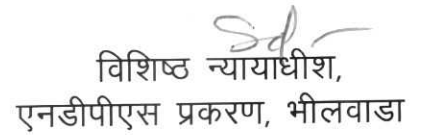 Sd/-
विशिष्ठ न्यायाधीश,
एनडीपीएस प्रकरण, भीलवाडा